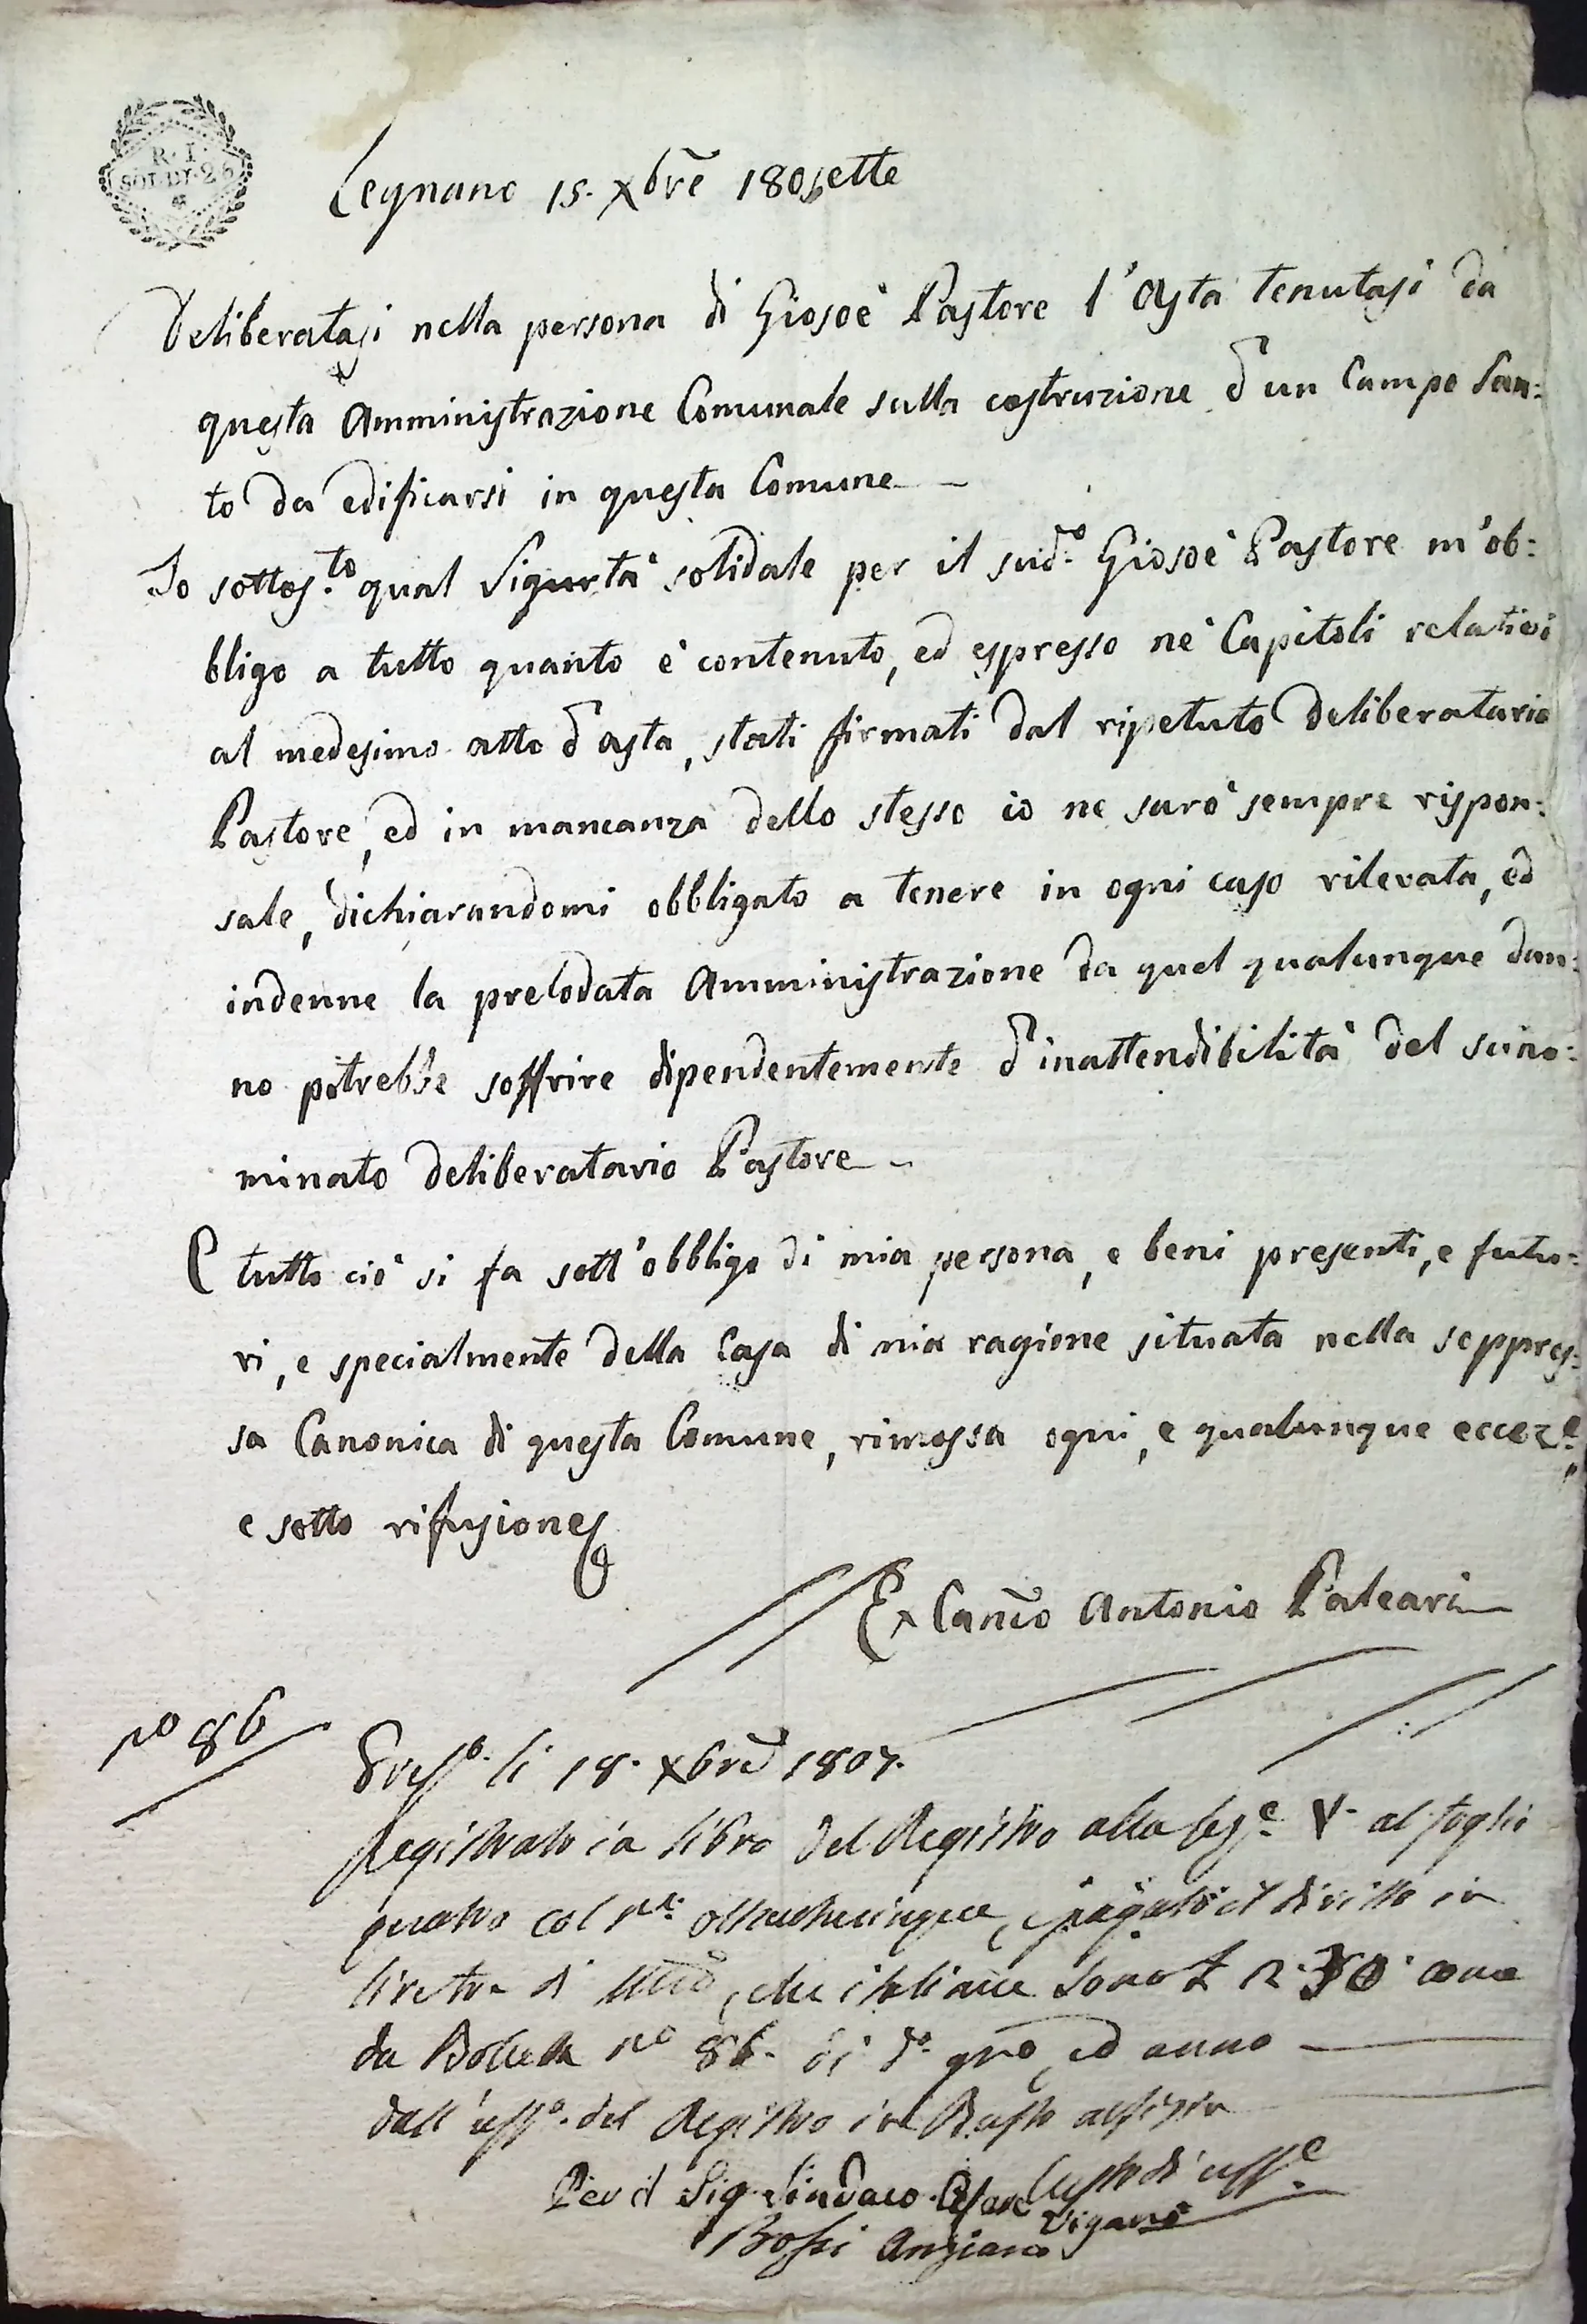 R. I.
SOLDI. 25
Legnano 15. Xbrē 180sette
Deliberatasi nella persona di Giosoè Pastore l'Asta tenutasi da
questa Amministrazione Comunale sulla costruzione d'un Campo San:
to da edificarsi in questa Comune
Io sottos.to qual Sigurtà solidale per il sud.o Giosoè Pastore m'ob:
bligo a tutto quanto è contenuto, ed espresso ne' Capitoli relativi
al medesimo atto d'asta, stati firmati dal ripetuto deliberatario
Pastore, ed in mancanza dello stesso io ne sarò sempre rispon:
sale, dichiarandomi obbligato a tenere in ogni caso rilevata, ed
indenne la prelodata Amministrazione da quel qualunque dan:
no potrebbe soffrire dipendentemente d'inattendibilità del seino:
minato deliberatario Pastore
E tutto ciò si fa sott'obbligo di mia persona, e beni presenti, e futu:
ri, e specialmente della Casa di mia ragione situata nella seppres:
sa Canonica di questa Comune, rimossa ogni, e qualunque eccez.e,
e sotto rifusione
Ex Canco Antonio Paleari
No 86
li 18. Xbre 1807.
Registrato in libro del Registro alla V. al foglio
quatro col ottantacinque, e pagato il diritto in
lire tre di che italiane sono L 2.30. come
da Bolletta No 86. di d.o gno, ed anno
dall'uff.o del Registro in Busto arsizio
Custodi uff.e
Per il Sig. Sindaco Cesare Viganò
Bossi Anziano